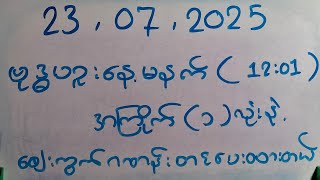 23.07.2025
ဗုဒ္ဓဟူးနေ့မနက် (12:01)
အကြိုက် (၁) လုံးမို့
ဈေးကွက် ဂဏန်း တင်ပေးထားတယ်